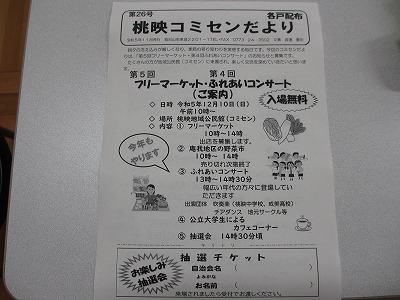 第26号
各戸配布
桃映コミセンだより
朝夕の冷え込みが厳しくなり、
第5回 第4回
フリーマーケット・ふれあいコンサート
(ご案内)
入場無料
◇ 日時 令和5年12月10日(日)
午前10時〜
◇ 場所 桃映地域公民館(コミセン)
◇ 内容 ① フリーマーケット
10時〜14時
出店を募集します。
今年もやります
② 庵我地区の野菜市
10時〜 14時
売り切れ次第終了
③ ふれあいコンサート
13時〜14時30分
幅広い年代の方々に登場していただきます
出演団体 吹奏楽(桃映中学校、成美高校)
チアダンス 地元サークル等
④ 公立大学生による
カフェコーナー
⑤ 抽選会 14時30分頃
キリトリ
お楽しみ抽選会
抽選チケット
自治会名( )
よみがな
お名前( )
来場されましたら受付でお渡しください。